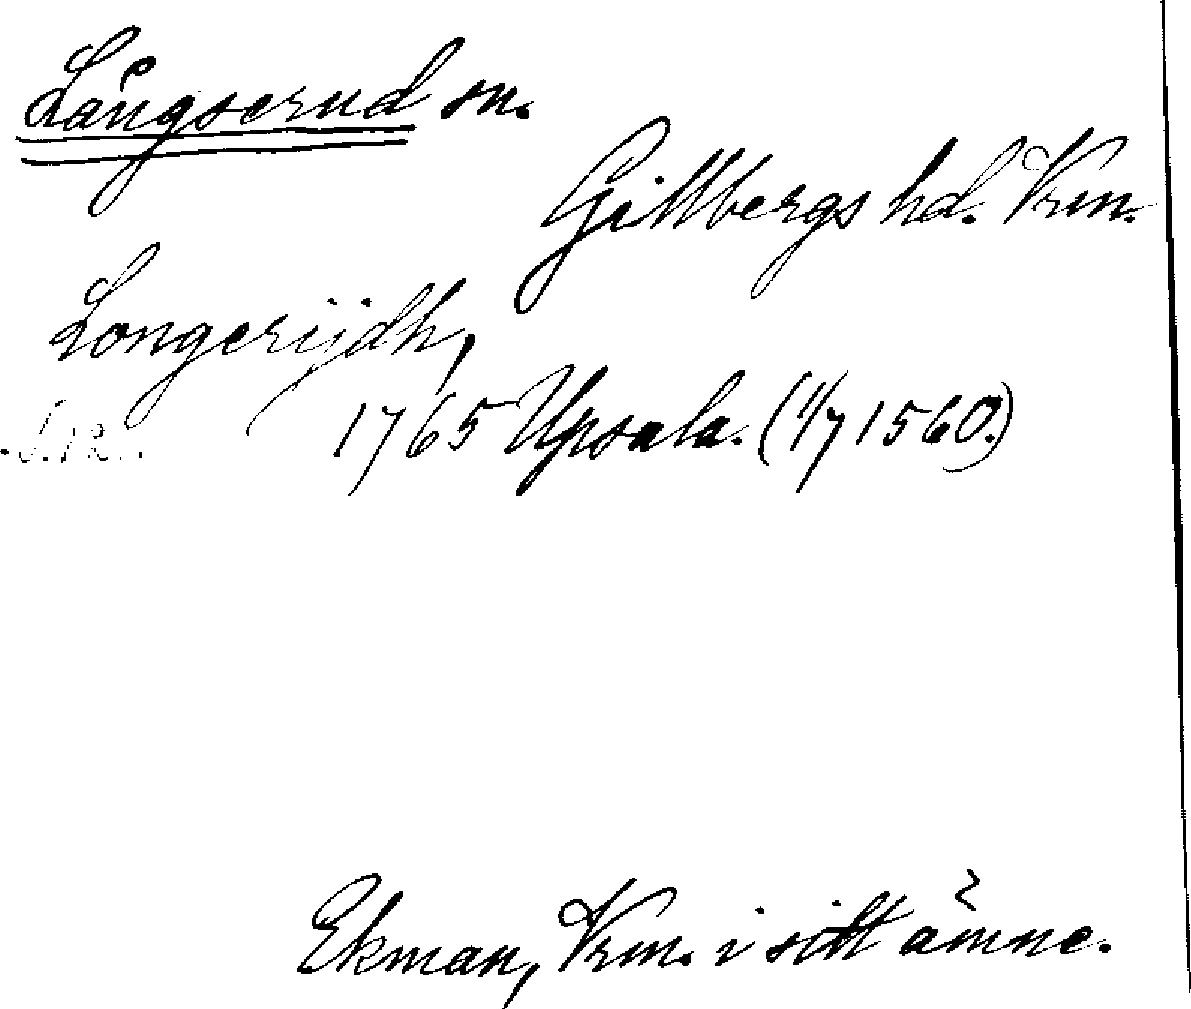 Långserud sn.
Gillbergs hd. Vrm.
Longerijdh,
1765 Upsala. (1/7 1560.)
Ekman, Vrm. i sitt ämne.